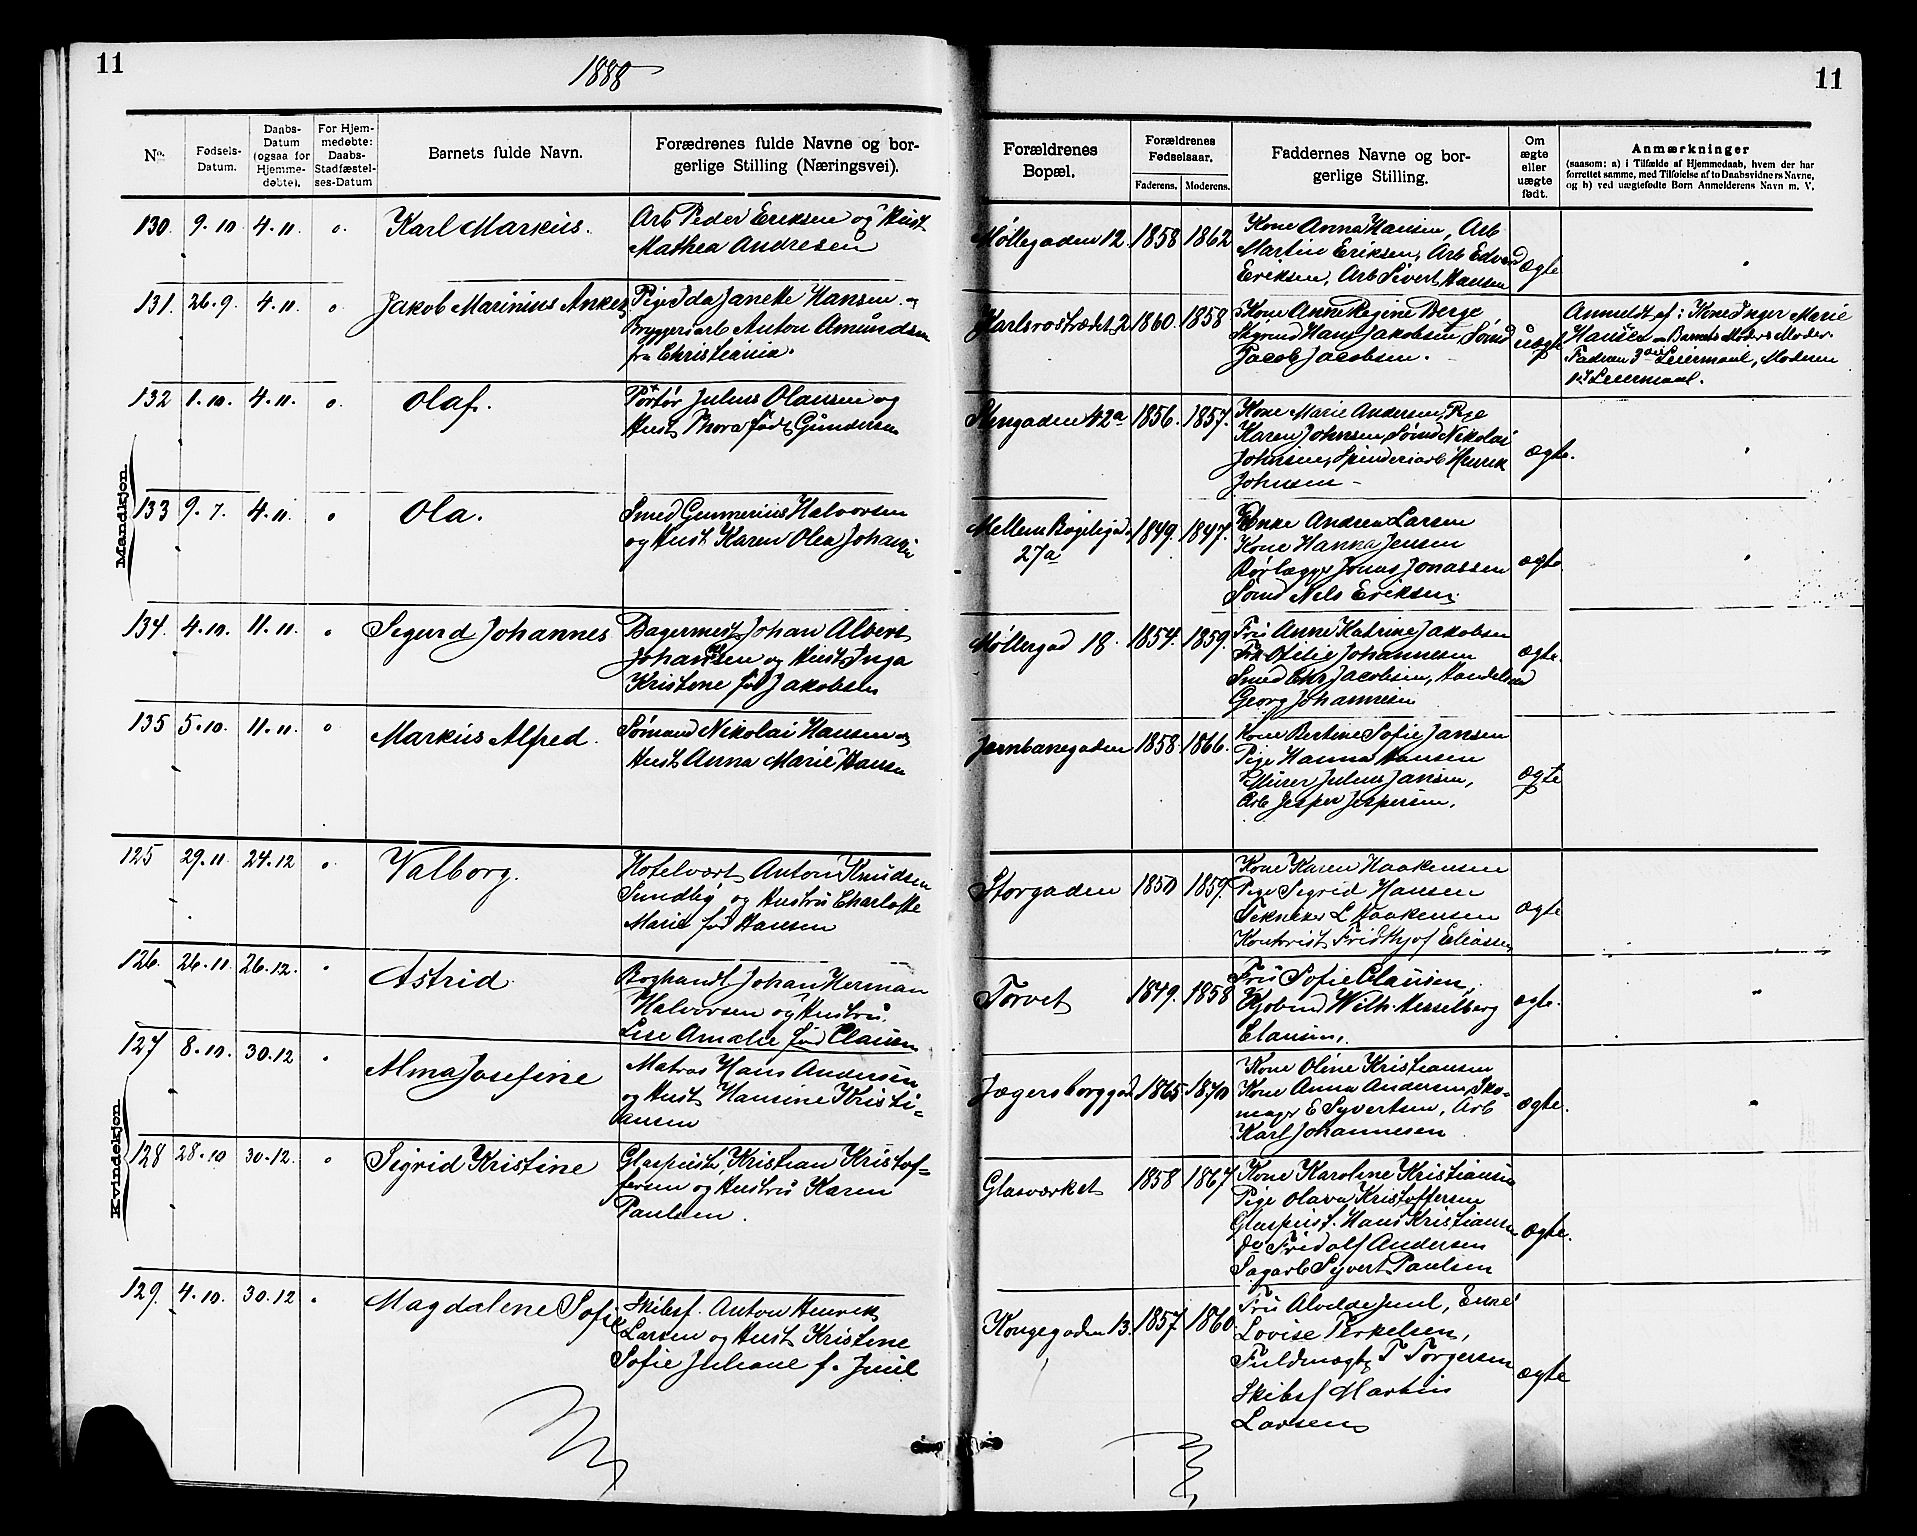 11
1888
11
No.
Fødsels-
Datum.
Daabs-
Datum
(ogsaa for
Hjemme-
døbte).
For Hjem-
medøbte:
Daabs-
Stadfæstel-
ses-Datum
Barnets fulde Navn.
Forældrenes fulde Navne og bor-
gerlige Stilling (Næringsvei).
Forældrenes
Bopæl.
Forældrenes
Fødselsaar.
Faderens. Moderens.
Faddernes Navne og bor-
gerlige Stilling.
Om
ægte
eller
uægte
født.
Anmærkninger
(saasom: a) i Tilfælde af Hjemmedaab, hvem der har
forrettet samme, med Tilføielse af to Daabsvidners Navne,
og b) ved uægtefødte Børn Anmelderens Navn m. V.
Mandkjøn
130. 9.10 4.11. o. Karl Markus.
Arb Peder Eriksen og Hust
Mathea Andresen
Møllegaden 12. 1858 1862
Kone Anna Hansen, Arb
Martin Eriksen, Arb Edvard
Eriksen, Arb Sivert Hansen
ægte
131. 26.9. 4.11. o Jakob Marinius Anker
Pige Ida Janette Hansen og
Bryggeriarb Anton Amundsen
fra Christiania.
Karlsrostrædet 2 1860. 1858
Kone Anne Regine Berge
Hans Jakobsen, Sømd
Jacob Jacobsen.
uægte
Anmeldt af: Kone Inger Marie
Hansen Barnets Moders Moder.
Faderen 3die Leiermaal, Moderen
1st Leiermaal.
132 1.10. 4.11. o. Olaf.
Portør Julius Olausen og
Hust Thora født Gundersen
Stengaden 42a 1856. 1857.
Kone Marie Andersen, Pige
Karen Johnsen, Sømd Nikolai
Johnsen, Spinderiarb Henrik
Johnsen
ægte.
133 9.7. 4.11. o Ola.
Smed Gunnerius Halvorsen
og Hust Karen Olea Johansen
Mellem Bøgeligad.
27a
1849. 1847.
Enke Andrea Larsen
Kone Hanna Jensen
Rørlægger Jonas Jonassen
Sømd Nils Eriksen.
ægte
134. 4.10. 11.11. o Sigurd Johannes
Bagermest Johan Albert
Johansen og Hust Inga
Kristine fød Jakobsen
Møllergad 18. 1854. 1859.
Fru Anne Katrine Jakobsen
Frk Otilie Johannesen
Smed Chr Jacobsen, Handelsmd
Georg Johannesen
ægte.
135 5.10. 11.11. o Markus Alfred.
Sømand Nikolai Hansen og
Hust Anna Marie Hansen
Jernbanegaden 1858. 1866.
Kone Bertine Sofie Jansen
Pige Hanna Hansen
Murer Julius Jansen,
Arb Jesper Jespersen.
ægte
Kvindekjøn
125 29.11. 24.12 o. Valborg.
Hotelvært Anton Knudsen
Sundby og Hustru Charlotte
Marie fød Hansen
Storgaden 1850 1859.
Kone Karen Haakensen
Pige Sigrid Hansen
Tekniker L Haakensen
Kontorist Fridthjof Eliassen
ægte
126. 26.11. 26.12. Astrid.
Boghandl Johan Herman
Halvorsen og Hustru
Lise Amalie fød Clausen
Torvet 1849. 1858
Fru Sofie Clausen,
Kjøbmd Wilh. Hesselberg
Clausen.
ægte.
127 8.10. 30.12 Alma Josefine
Matros Hans Andersen
og Hust Hansine Kristi-
ansen
Jægersborggad 1865. 1870
Kone Oline Kristiansen
Kone Anna Andersen, Sko-
mager E Syvertsen, Arb
Karl Johannesen
ægte.
128 28.10 30.12. Sigrid Kristine
Glaspuster Kristian Kristof-
fersen og Hustru Karen
Paulsen.
Glasværket 1858 1867
Kone Karoline Kristiansen
Pige Olava Kristoffersen
Glaspust. Hans Kristiansen
do Fridolf Andersen
Sagarb Syvert Paulsen
ægte.
129. 4.10. 30.12 Magdalene Sofie
Skibsf. Anton Henrik
Larsen og Hust Kristine
Sofie Juliane f. Juul
Kongegaden 13. 1857. 1860.
Fru Alvilde Juul, Enke
Lovise Terkelsen,
Fuldmægtg T Torgersen
Skibsf Martin
Larsen
ægte